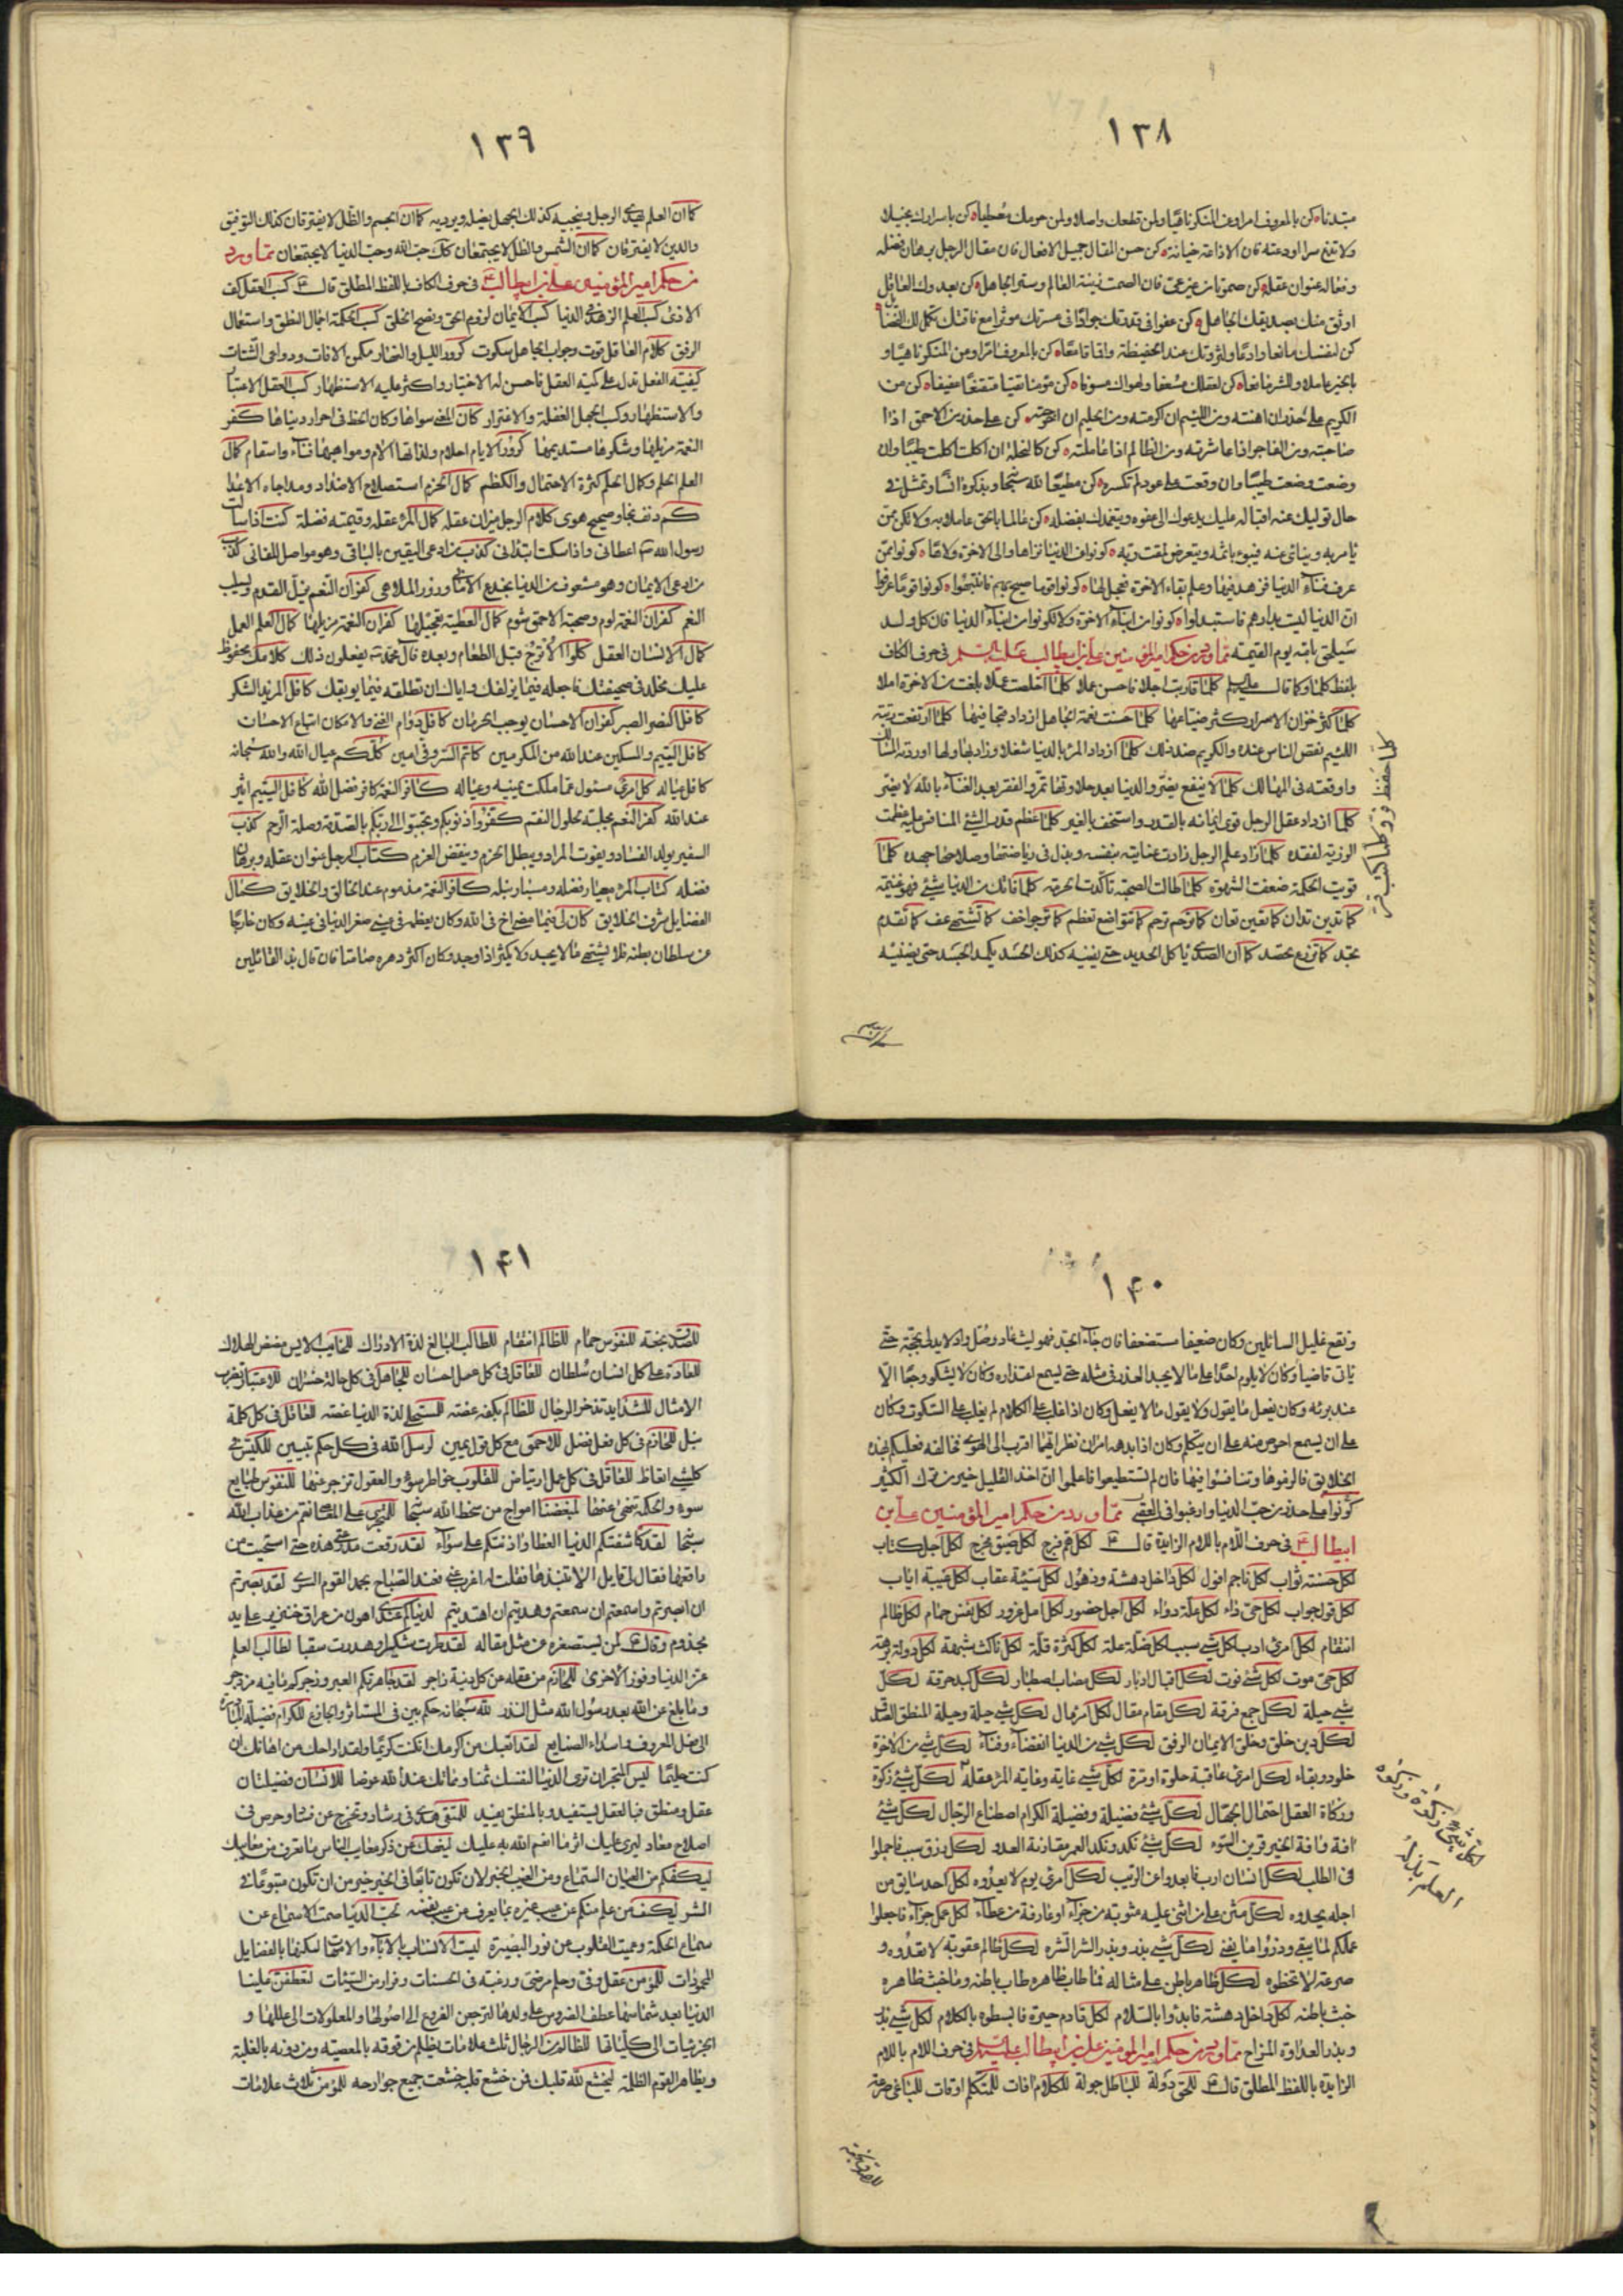 ١٣٨
مبتدئا كن بالمعروف امرا وعن المنكر ناهيا ولمن قطعك واصلا ولمن حرمك معطيا كن باسرارك بخيلا
ولا تذع سرا اودعته فان الاذاعة خيانة كن حسن المقال جميل الافعال فان مقال الرجل برهان فضله
وفعاله عنوان عقله كن صموتا من غير عى فان الصمت زينة العالم وستر الجاهل كن بعدوك العاقل
اوثق منك بصديقك الجاهل كن عفوا فى قدرتك جوادا فى عسرتك موثرا مع فاقتك تكمل لك الفضائل
كن لنفسك مانعا رادعا ولنزوتك عند الحفيظة واقما قامعا كن بالمعروف امرا وعن المنكر ناهيا و
بالخير عاملا وللشر مانعا كن لعقلك مسعفا ولهواك مسوفا كن مومنا تقيا متقنعا عفيفا كن من
الكريم على حذر ان اهنته ومن اللئيم ان اكرمته ومن الحليم ان احرجته كن على حذر من الاحمق اذا
صاحبته ومن الفاجر اذا عاشرته ومن الظالم اذا عاملته كن كالنحلة ان اكلت اكلت طيبا وان
وضعت وضعت طيبا وان وقعت على عود لم تكسره كن مطيعا لله سبحانه وبذكره انسا وتمثل فى
حال توليك عنه اقباله عليك يدعوك الى عفوه ويتغمدك بفضله كن عالما بالحق عاملا به ولا تكن ممن
يامر به وينائى عنه فيبوء باثمه ويتعرض لمقت ربه كونوا عن الدنيا نزاها والى الاخرة ولاها كونوا ممن
عرف فناء الدنيا فزهد فيها وعلم بقاء الاخرة فعمل لها كونوا قوما صيح بهم فانتبهوا كونوا قوما عرفوا
ان الدنيا ليست بدارهم فاستبدلوا كونوا من ابناء الاخرة ولا تكونوا من ابناء الدنيا فان كل ولد
سيلحق بامه يوم القيمة مما ورد من حكم امير المؤمنين على بن ابيطالب عليه السلم فى حرف الكاف
بلفظ كلما وكما قال عليه السلم كلما قاربت اجلا فاحسن عملا كلما اخلصت عملا بلغت من الاخرة املا
كلما كثر خزان الاسرار كثر ضياعها كلما حسنت نعمة الجاهل ازداد قبحا فيها كلما ارتفعت رتبة
اللئيم نقص الناس عنده والكريم ضد ذلك كلما ازداد المرء بالدنيا شغلا وزاد بها ولها اوردته المسالك
واوقعته فى المهالك كلما لا ينفع يضر والدنيا بعد حلاوتها تمر والفقر بعد الغناء بالله لا يضر
كلما ازداد عقل الرجل قوى ايمانه بالقدر واستخف بالغير كلما عظم قدر الشئ المنافس عليه عظمت
الرزية لفقده كلما زاد علم الرجل زادت عنايته بنفسه وبذل فى رياضتها وصلاحها جهده كلما
قويت الحكمة ضعفت الشهوة كلما طالت الصحبة تاكدت الحرمة كلما فاتك من الدنيا شئ فهو غنيمة
كما تدين تدان كما تعين تعان كما ترحم ترحم كما تتواضع تعظم كما ترجو اخف كما تشتهى عف كما تقدم
تجد كما تزرع تحصد كما ان الصدى ياكل الحديد حتى يفنيه كذلك الحسد يكمد الجسد حتى يفنيه
١٣٩
كما ان العلم يهدى الرجل وينجيه كذلك الجهل يضله ويرديه كما ان الجسم والظل لا يفترقان كذلك التوفيق
والدين لا يفترقان كما ان الشمس والظل لا يجتمعان كذلك حب الله وحب الدنيا لا يجتمعان مما ورد
من حكم امير المؤمنين على بن ابيطالب فى حرف الكاف باللفظ المطلق قال كسب العقل كف
الاذى كسب العلم الزهد فى الدنيا كسب الايمان لزوم الحق ونصح الخلق كسب الحكمة اجمال النطق واستعمال
الرفق كلام العاقل قوت وجواب الجاهل سكوت كرور الليل والنهار مكمن الافات ودواعى الشتات
كيفية الفعل تدل على كمية العقل فاحسن له الاختيار واكثر عليه الاستظهار كسب العقل الاعتبار
والاستظهار وكسب الجهل الغفلة والاغترار كان المغنى سواها وكان الحظ فى احراز دنياها كفر
النعمة مزيلها وشكرها مستديمها كرور الايام احلام ولذاتها الام ومواهبها فناء واسقام كمال
العلم الحلم وكمال الحلم كثرة الاحتمال والكظم كمال الحزم استصلاح الاضداد ومداجاة الاعداء
كم دنف نجا وصحيح هوى كلام الرجل ميزان عقله كمال المرء عقله وقيمته فضله كنت اذا سالت
رسول الله اعطانى واذا سكت ابتدانى كذب من ادعى اليقين بالباقى وهو مواصل للفانى كذب
من ادعى الايمان وهو مشعوف من الدنيا بخدع الامانى وزور الملاهى كفران النعم يزل القدم ويسلب
النعم كفران النعمة لوم وصحبة الاحمق شوم كمال العطية تعجيلها كفران النعمة مزيلها كمال العلم العمل
كمال الانسان العقل كلوا الاترج قبل الطعام وبعده فال محمد يفعلون ذلك كلامك محفوظ
عليك مخلد فى صحيفتك فاجعله فيما يزلفك واياك ان تطلقه فيما يوبقك كافل المزيد الشكر
كافل النصر الصبر كفران الاحسان يوجب الحرمان كافل دوام الغنى والامكان اتباع الاحسان
كافل اليتيم والمسكين عند الله من المكرمين كاتم السر وفى امين كلكم عيال الله والله سبحانه
كافل عياله كل امرئ مسئول عما ملكت يمينه وعياله كافر النعمة كافر فضل الله كافل اليتيم اثير
عند الله كفر النعم مجلبة لحلول النقم كفروا ذنوبكم وتحببوا الى ربكم بالصدقة وصلة الرحم كذب
السفير يولد الفساد ويفوت المراد ويبطل الحزم وينقض العزم كتاب الرجل عنوان عقله وبرهان
فضله كتاب المرء معيار فضله ومسبار نبله كافر النعمة مذموم عند الخالق والخلايق كمال
الفضايل شرف الخلايق كان لى فيما مضى اخ فى الله وكان يعظمه فى عينى صغر الدنيا فى عينه وكان خارجا
من سلطان بطنه فلا يشتهى ما لا يجد ولا يكثر اذا وجد وكان اكثر دهره صامتا فان قال بذ القائلين
١۴٠
ونقع غليل السائلين وكان ضعيفا مستضعفا فان جاء الجد فهو ليث عاد وصل واد لا يدلى بحجة حتى
ياتى قاضيا وكان لا يلوم احدا على ما لا يجد العذر فى مثله حتى يسمع اعتذاره وكان لا يشكو وجعا الا
عند برئه وكان يفعل ما يقول ولا يقول ما لا يفعل وكان اذا غلب على الكلام لم يغلب على السكوت وكان
على ان يسمع احرص منه على ان يتكلم وكان اذا بدهه امران نظر ايهما اقرب الى الهوى فخالفه فعليكم بهذه
الخلائق فالزموها وتنافسوا فيها فان لم تستطيعوا فاعلموا ان اخذ القليل خير من ترك الكثير
كونوا على حذر من حب الدنيا وارغبوا فى العقبى مما ورد من حكم امير المؤمنين على بن
ابيطالب فى حرف اللام باللام الزايدة قال لكل هم فرج لكل ضيق مخرج لكل اجل كتاب
لكل حسنة ثواب لكل ناجم افول لكل داخل دهشة وذهول لكل سيئة عقاب لكل غيبة اياب
لكل قول جواب لكل حى داء لكل علة دواء لكل اجل حضور لكل امل غرور لكل نفس حمام لكل ظالم
انتقام لكل امرئ ادب لكل شئ سبب لكل ضلة علة لكل كثرة قلة لكل ناكث شبهة لكل دولة برهة
لكل حى موت لكل شئ فوت لكل اقبال ادبار لكل مصاب اصطبار لكل كبد حرقة لكل
شئ حيلة لكل جمع فرقة لكل مقام مقال لكل امر مال لكل شئ حيلة وحيلة المنطق الصدق
لكل دين خلق وخلق الايمان الرفق لكل شئ من الدنيا انقضاء وفناء لكل شئ من الاخرة
خلود وبقاء لكل امرئ عاقبة حلوة او مرة لكل شئ غاية وغاية المرء عقله لكل شئ زكوة
وزكاة العقل احتمال الجهال لكل شئ فضيلة وفضيلة الكرام اصطناع الرجال لكل شئ
افة وافة الخير قرين السوء لكل شئ نكد ونكد العمر مقارنة العدو لكل رزق سبب فاجملوا
فى الطلب لكل انسان ارب فابعدوا عن الريب لكل امرئ يوم لا يعدوه لكل احد سايق من
اجله يحدوه لكل مثن على من اثنى عليه مثوبة من جزاء او عارفة من عطاء لكل عمل جزاء فاجعلوا
عملكم لما يبقى وذروا ما يفنى لكل شئ بذر وبذر الشر الشره لكل ظالم عقوبة لا تعدوه و
صرعة لا تخطوه لكل ظاهر باطن على مثاله فما طاب ظاهره طاب باطنه وما خبث ظاهره
خبث باطنه لكل داخل دهشة فابدؤا بالسلام لكل قادم حيرة فابسطوه بالكلام لكل شئ بذر
وبذر العداوة المزاح مما ورد من حكم امير المؤمنين على بن ابيطالب عليه السلم فى حرف اللام باللام
الزايدة باللفظ المطلق قال للحق دولة للباطل جولة للكلام افات للمتكلم اوقات للباغى صرعة
١۴١
للنفوس حمام للظالم انتقام للطالب البالغ لذة الادراك للخايب الايس مضض الهلاك
للعادة على كل انسان سلطان للعاقل فى كل عمل احسان للجاهل فى كل حالة خسران للاعتبار تضرب
الامثال للشدايد تدخر الرجال للظالم بكفه عضة للمستحلى لذة الدنيا غصة للعاقل فى كل كلمة
نبل للحازم فى كل فعل فضل للاحمق مع كل قول يمين لرسل الله فى كل حكم تبيين للكيس فى
كل شئ اتعاظ للعاقل فى كل عمل ارتياض للقلوب خواطر سوء والعقول تزجر عنها للنفوس طبايع
سوء والحكمة تنهى عنها لمبغضنا امواج من سخط الله سبحانه
سبحانه لقد كاشفتكم الدنيا الغطا واذنتكم على سواء لقد رقعت مدرعتى هذه حتى استحييت من
راقعها فقال لى قايل الا تنبذها فقلت له اغرب عنى فعند الصباح يحمد القوم السرى لقد بصرتم
ان ابصرتم واسمعتم ان سمعتم وهديتم ان اهتديتم لدنياكم عندى اهون من عراق خنزير على يد
مجذوم وقال لمن يستصغره عن مثل مقاله لقد طرت شكيرا وهدرت سقبا لطالب العلم
عز الدنيا وفوز الاخرى للحازم من عقله عن كل دنية زاجر لقد جاهرتكم العبر وزجركم ما فيه مزدجر
وما بلغ عن الله بعد رسول الله مثل النذر لله سبحانه حكم بين فى المستاثر والجازع للكرام فضيلة المبادرة
الى فعل المعروف واسداء الصنايع لقد اتعبك من اكرمك ان كنت كريما ولقد اراحك من اهانك ان
كنت حليما لبئس المتجر ان ترى الدنيا لنفسك ثمنا ومما لك عند الله عوضا للانسان فضيلتان
عقل ومنطق فبالعقل يستفيد وبالمنطق يفيد للمتقى هدى فى رشاد وتحرج عن فساد وحرص فى
اصلاح معاد ليرى عليك اثر ما انعم الله به عليك ليكفك عن ذكر معايب الناس ما تعرف من معايبك
ليكفكم من العيان السماع ومن الغيب الخبر لان تكون تابعا فى الخير خير من ان تكون متبوعا فى
الشر ليكفف من علم منكم عن عيب غيره ما يعرف من عيب نفسه لحب الدنيا صمت الاسماع عن
سماع الحكمة وعميت القلوب عن نور البصيرة ليست الانساب بالاباء والامهات لكنها بالفضايل
المحمودات للمؤمن عقل وفى وحلم مرضى ورغبة فى الحسنات وفرار من السيئات لتعطفن علينا
الدنيا بعد شماسها عطف الضروس على ولدها لترجعن الفروع الى اصولها والمعلولات الى عللها و
الجزئيات الى كلياتها للظالم من الرجال ثلث علامات يظلم من فوقه بالمعصية ومن دونه بالغلبة
ويظاهر القوم الظلمة ليخشع لله قلبك فمن خشع قلبه خشعت جميع جوارحه للمؤمن ثلاث علامات